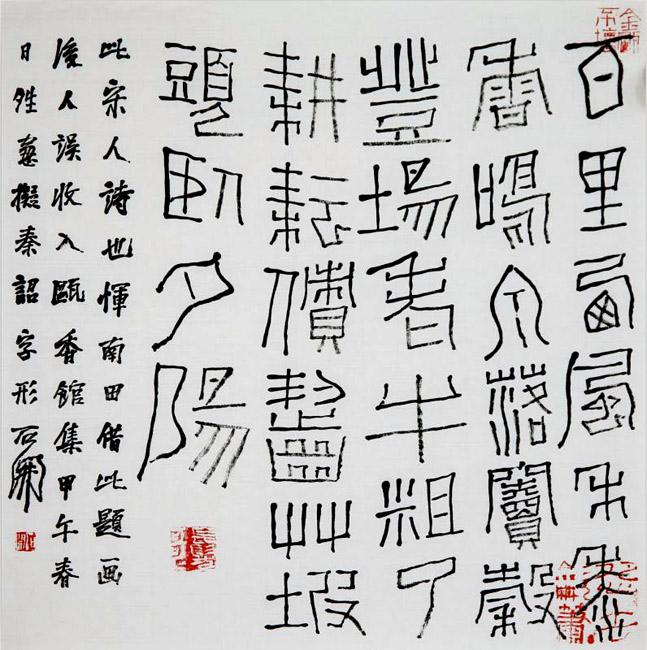 百里西風禾黍
香鳴泉落竇穀
登場老牛粗了
耕耘債齧草坡
頭臥夕陽
此宋人詩也惲南田借此題画
後人誤收入甌香館集甲午春
日擬秦詔字形石開